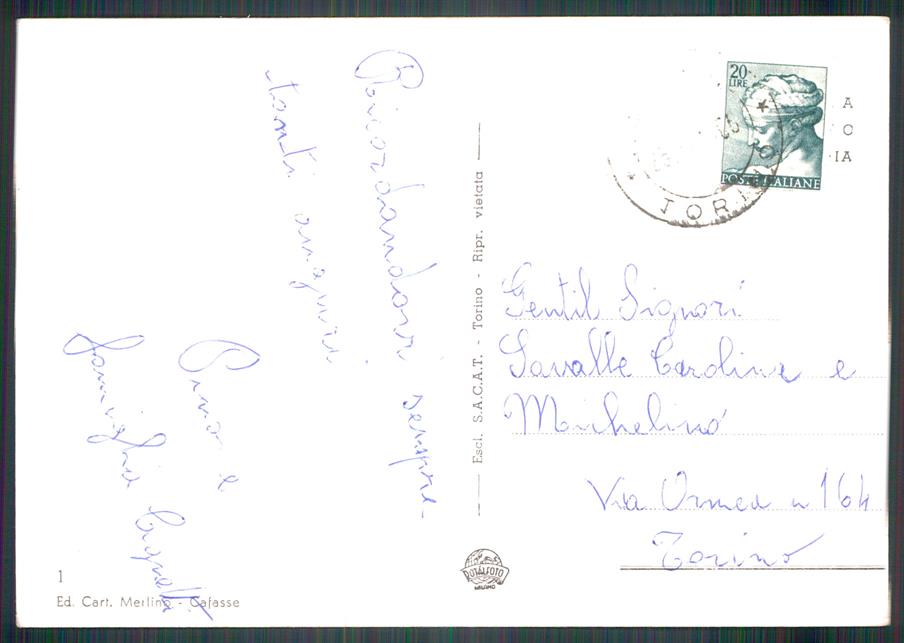 Ricordandovi sempre
tanti auguri
Pino e
famiglia
20
LIRE
POSTE ITALIANE
TORINO
A
O
IA
Gentil Signori
Savalle Carolina e
Michelino
Via Ormea n 164
Torino
Escl. S.A.C.A.T. - Torino - Ripr. vietata
ROTALFOTO
MILANO
1
Ed. Cart. Merlino - Cafasse